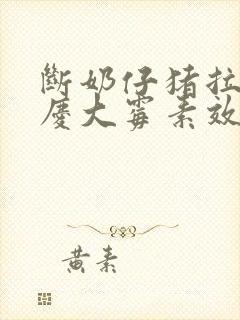 斷奶仔猪拉
慶大霉素效
黄素